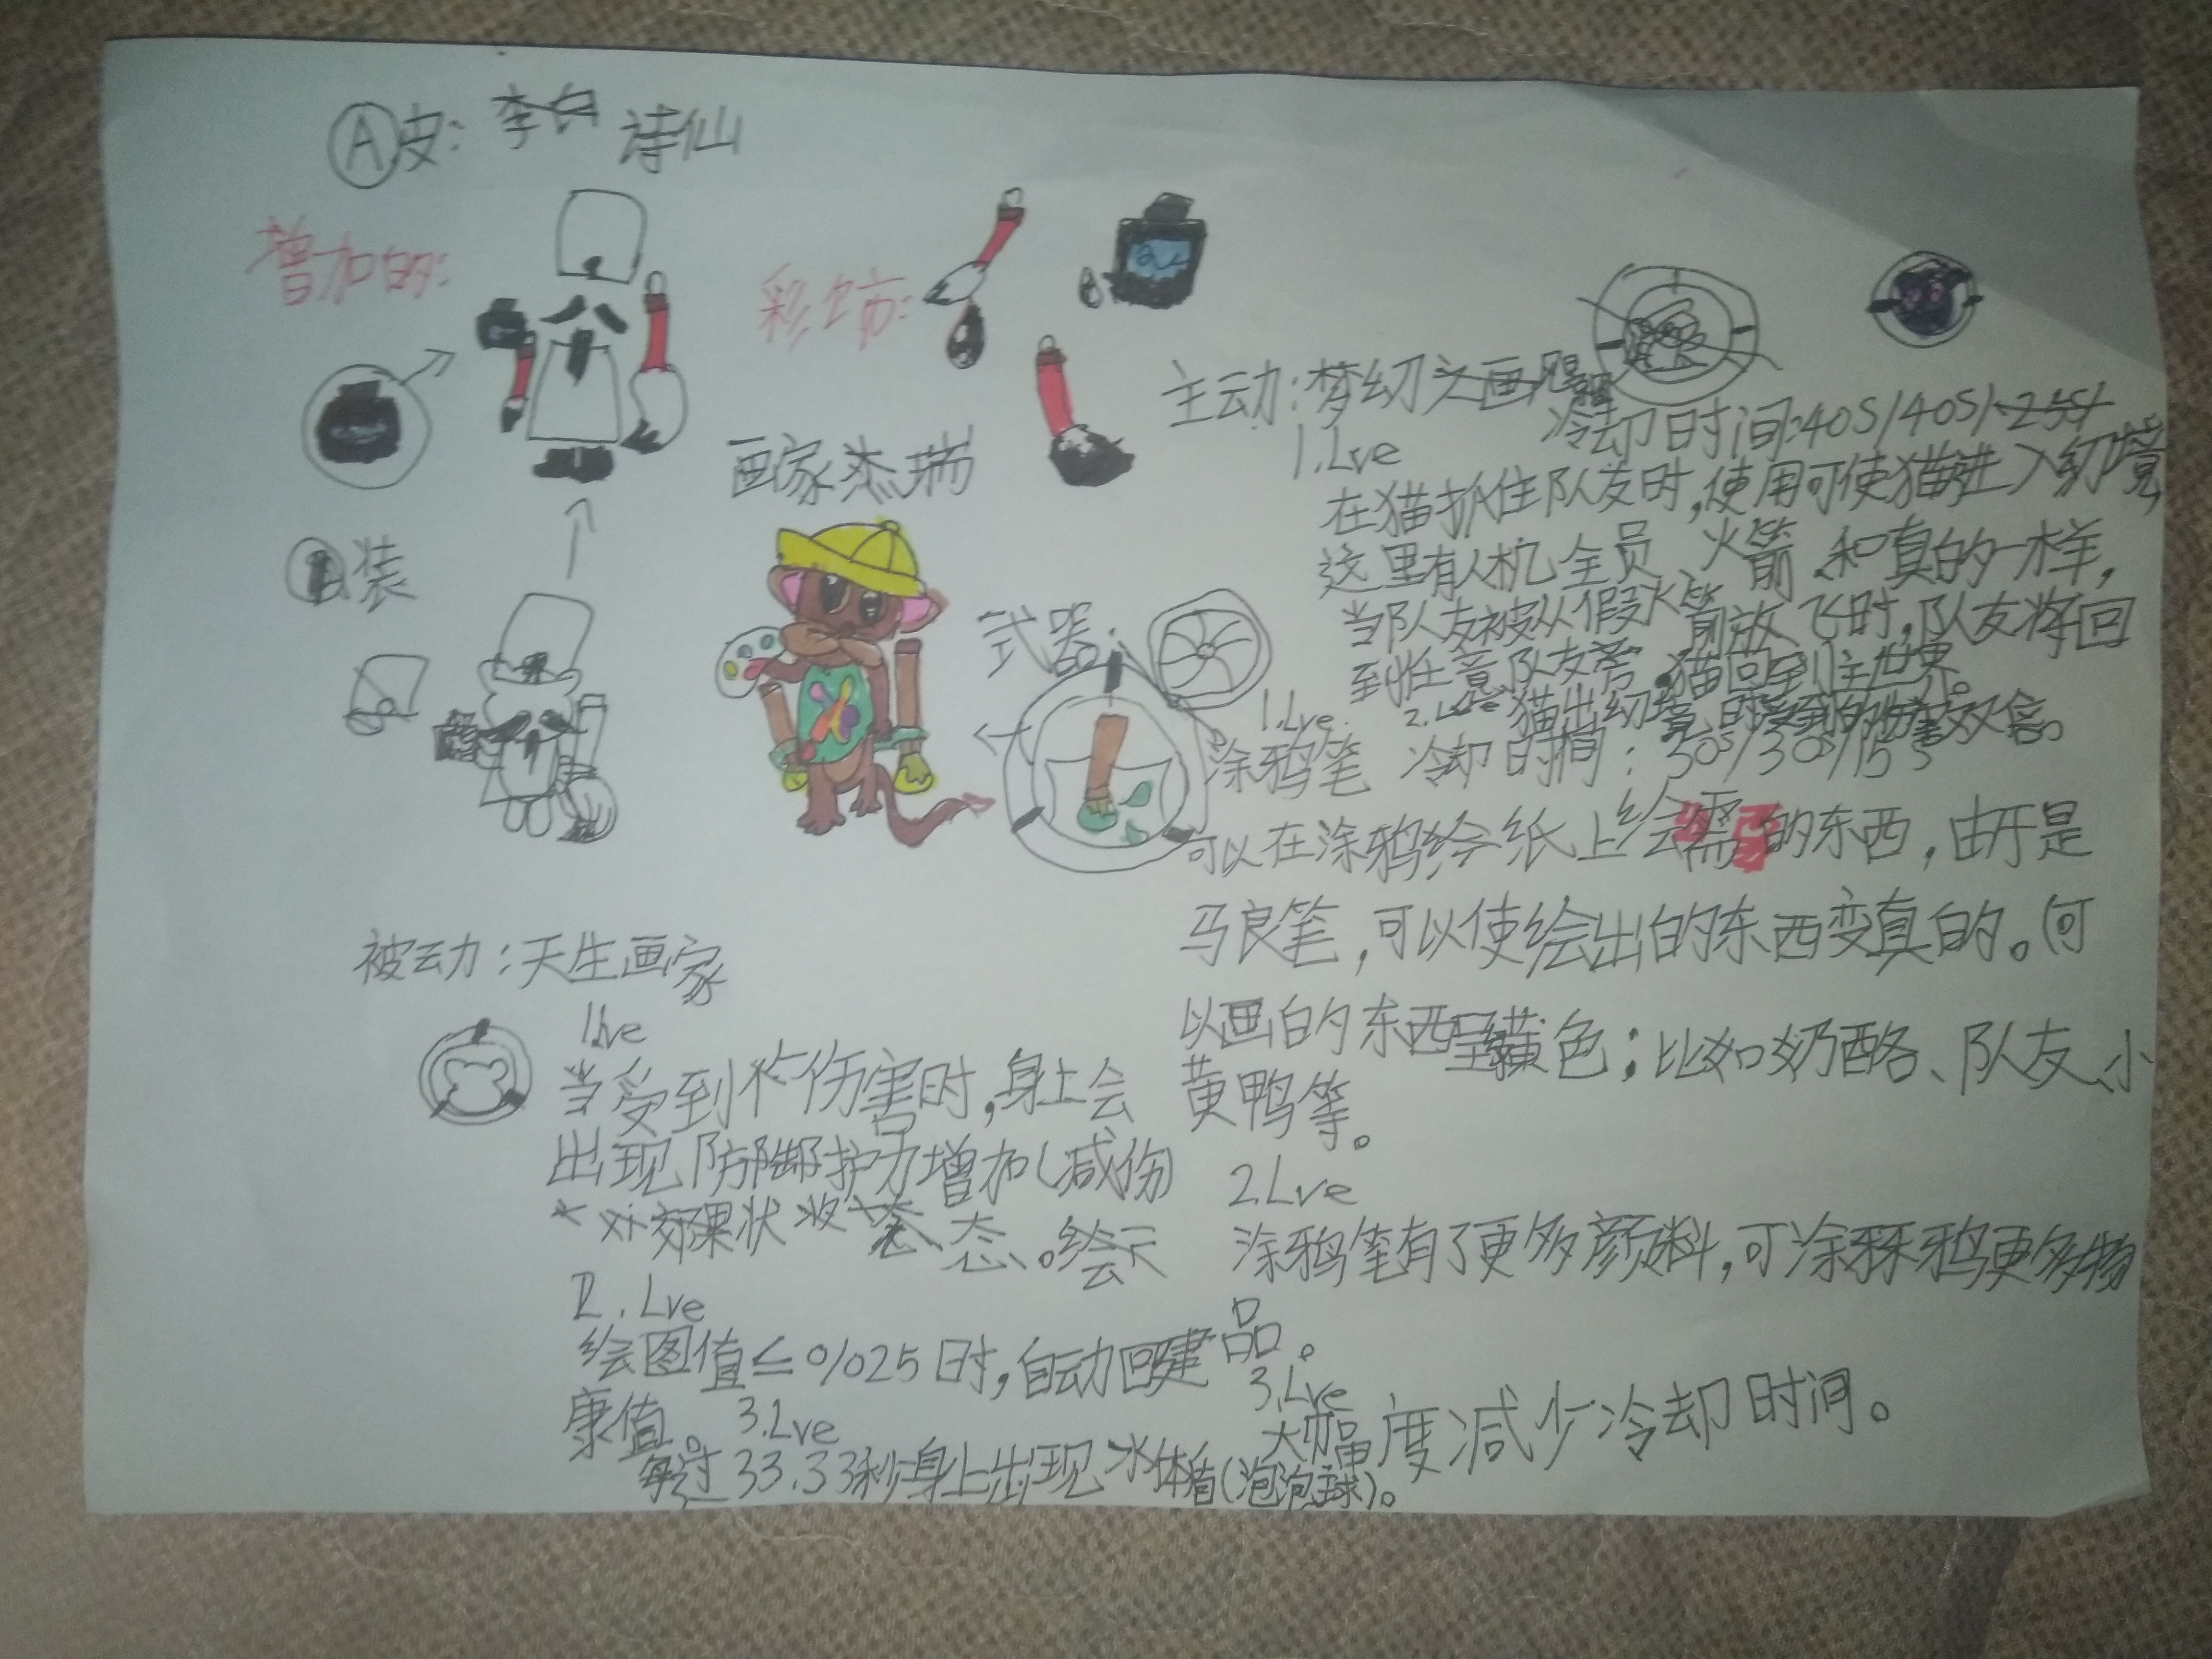 A皮：李白 诗仙
增加的：
彩饰：
画家杰瑞
装
武器：
主动：梦幻之画
冷却时间：40S/40S/25S/
1.Lve
在猫抓住队友时，使用可使猫进入幻境
这里有人机全员、火箭、和真的一样，
当队友被从假火箭放飞时，队友将回
到任意队友旁，猫回到主世界。
2.Lve 猫出幻境时受到的伤害双倍。
1.Lve
涂鸦笔 冷却时间：30s/30s/15s
可以在涂鸦绘纸上绘需要的东西，由于是
马良笔，可以使绘出的东西变真的。(可
以画的东西呈黄色；比如奶酪、队友、小
黄鸭等。
2.Lve
涂鸦笔有了更多颜料，可涂鸦更多物
品。
3.Lve
大幅度减少冷却时间。
被动：天生画家
1.lve
当受到伤害时，身上会
出现防护力增加(减伤
效果状态。
2.Lve
绘图值≤%25时，自动回健
康值。
3.Lve
每过33.33秒身上出现水体盾(泡泡球)。